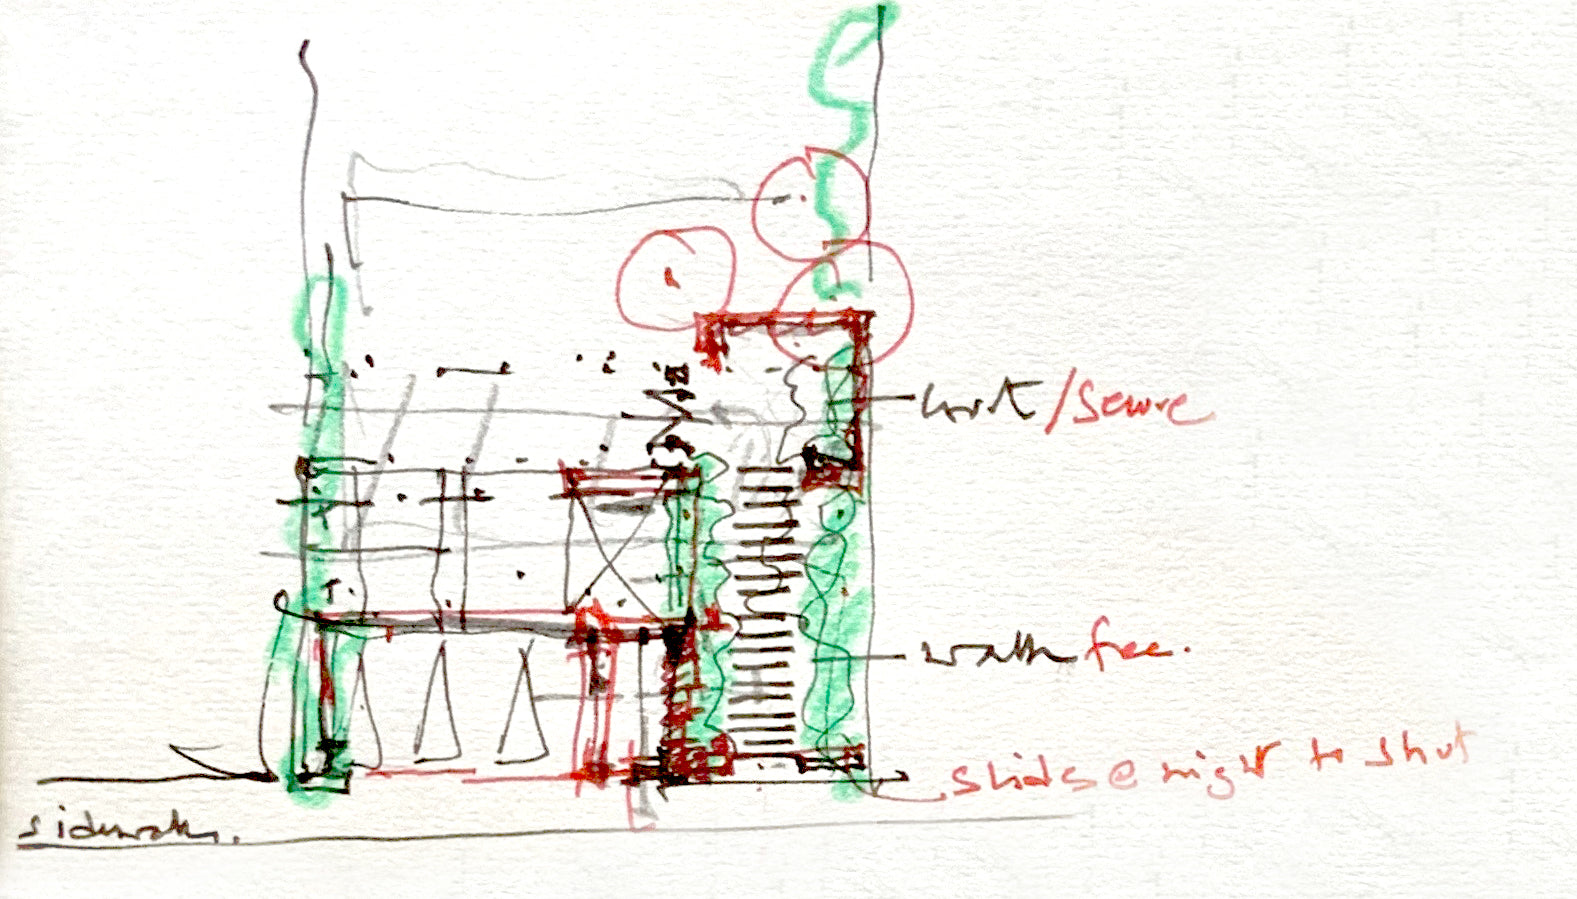 /secure
walk free.
slides @ night to shut
sidewalk.